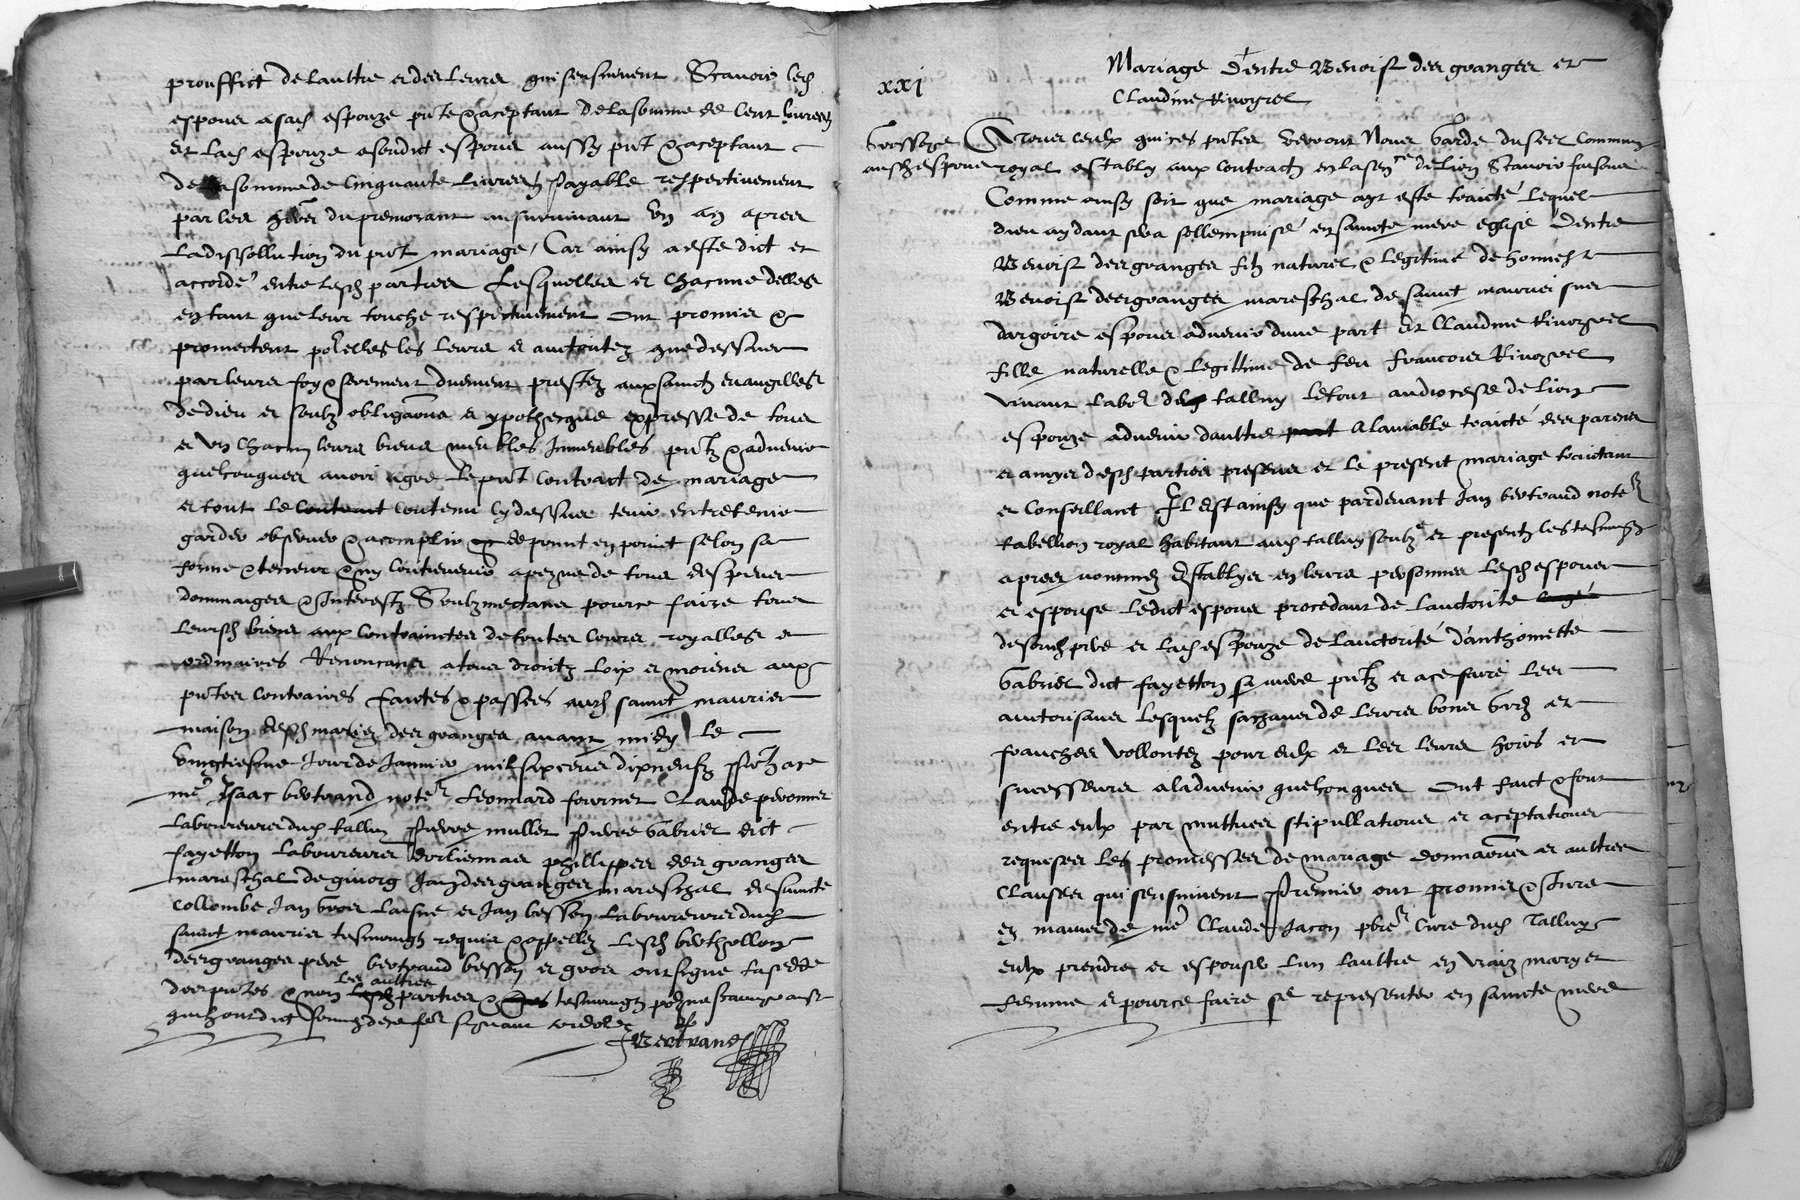 prouffict de laultre et des leurs qui sensuivent Scavoir led
espoux a sad espouze pnte & aceptant de la somme de Cent livres
Et lad espouze a sondict espoux aussy pnt & aceptant
de la somme de Cinquante livres payable respectivement
par les hers du premorant au survivant Un an apres
La dissollution du pnt mariage / Car ainsy a este dict et
accordé entre lesd parties Lesquelles et Chacune delles
en tant que leur touche respectivement Ont promis &
promectent por elles les leurs et auctoritez que dessus
par leurs foy & serement duement prestez aux sainctz evangilles
de dieu et soubz obligaons et ypothecque expresse de tous
et Un Chacun leurs biens meubles Immeubles pntz & advenir
quelconques avoir agre le pnt Contract de mariage
et tout le contenu cy dessus tenir entretenir
garder observer & acomplir de point en point selon sa
forme & teneur & ny contrevenir a peyne de tous despens
dommaiges & Interestz Soubzmectans pource faire tous
leursd biens aux Contrainctes de toutes Cours royalles et
ordinaires Renoncans a tous droictz loix et moiens aux
pntes contraires faictes & passees aud sainct maurier
maison desd mariez des granges avant midy le
Vingtiesme Jour de Janvier mil six cens dix neufz pntz a ce
me Isaac bertrand noter Leonnard fournet Claude peronnet
laboureurs dud talluy Pierre mullet Pierre Gabriel dict
fayetton laboureurs dorlienas phillippes des granges
mareschal de givorg Jan des granges mareschal de saincte
Collombe Jan Gros laisne et Jan besson laboureurs dud
sainct maurier tesmoingz requis & appellez Lesd berthollon
des granges pere bertrand besson et gros ont signe la cedde
des pntes & non les aultres parties & tesmoingz por ne scavoir ainsy
quilz ont dict sommez de ce fere suyvant lordonce
Bertrand
xxj
Mariage d'entre Benoist des granges et
Claudine Rivoyrel
Grossoye
aud espoux
A Tous ceulx qui ces pntes verront Nous Garde du seel Commun
royal estably aux contractz en la senee de Lion Scavoir faisons
Comme ainsy soit que mariage ayt esté traicté Lequel
dieu aydant sera sollempnisé en saincte mere eglise D'entre
Benoist des granges filz naturel & legitime de honneste
Benoist des granges mareschal de sainct maurier sur
dargoire espoux advenir dune part Et Claudine Rivoyrel
fille naturelle & legittime de feu francois Rivoyrel
vivant labor de talluy le tout au diocese de lion
espouze advenir daultre A lamiable traicté des parens
et amys desd parties presens et le present mariage traictant
et Conseillant Il Est ainsy que pardevant Jan bertrand noter
tabellion royal habitant aud talluy soubzne et presentz les tesmoingz
apres nommez Establys en leurs personnes lesd espoux
et espouse ledict espoux procedant de lauctorité
de sond pere et lad espouze de lauctorité d'anthoinette
Gabriel dict fayetton sa mere pntz et a ce faire les
auctorisans lesquelz sachans de leurs bons grez et
franches vollontez pour eulx et les leurs hoirs et
successeurs a ladvenir quelconques Ont faict & font
entre eulx par muttues stipullations et aceptations
requeses les promesses de mariage donnaons et aultres
Clauses qui sensuivent Premier ont promis & Jure
es mains de me Claude Jacon pbre Cure dud Talluy
eulx prendre et espouser lun laultre en vraiz mary et
femme et pource faire se representer en saincte mere